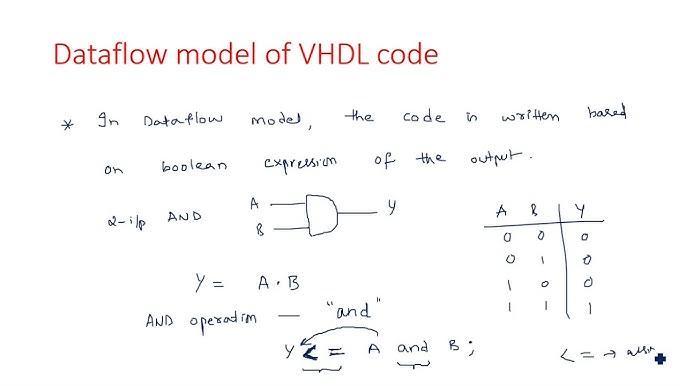 Dataflow model of VHDL code
* In Dataflow model, the code is written based
on boolean expression of the output.
2-i/p AND
A
B
Y
A B Y
0 0 0
0 1 0
1 0 0
1 1 1
Y = A · B
AND operation — "and"
Y <= A and B ;
<= →